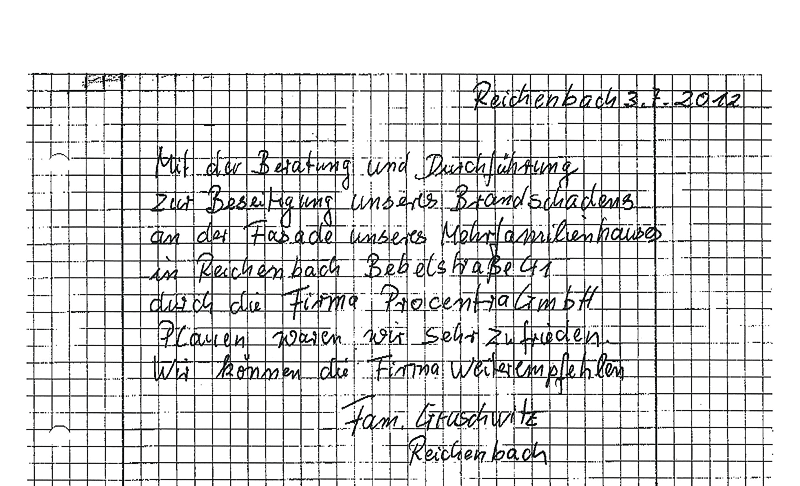 Reichenbach 3.7.2012
Mit der Beratung und Durchführung
zur Beseitigung unseres Brandschadens
an der Fasade unseres Mehrfamilienhauses
in Reichenbach Bebelstraße 41
durch die Firma Procentra GmbH
Plauen waren wir sehr zufrieden.
Wir können die Firma weiterempfehlen
Fam. Gruschwitz
Reichenbach